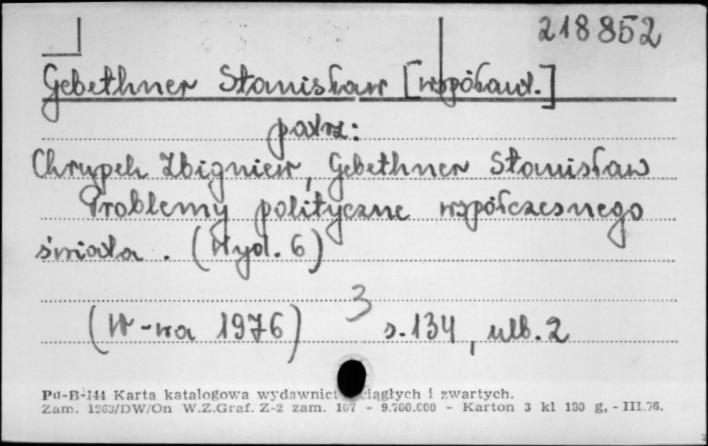 218852
Gebethner Stanisław [współaut.]
patrz:
Chrupek Zbigniew, Gebethner Stanisław
Problemy polityczne współczesnego
świata. (Wyd. 6)
3
(W-wa 1976) s. 134, nlb. 2
Pu-B-144 Karta katalogowa wydawnict ciągłych i zwartych.
Zam. 1263/DW/On W.Z.Graf. Z-2 zam. 107 - 9.700.000 - Karton 3 kl 130 g, - III.76.